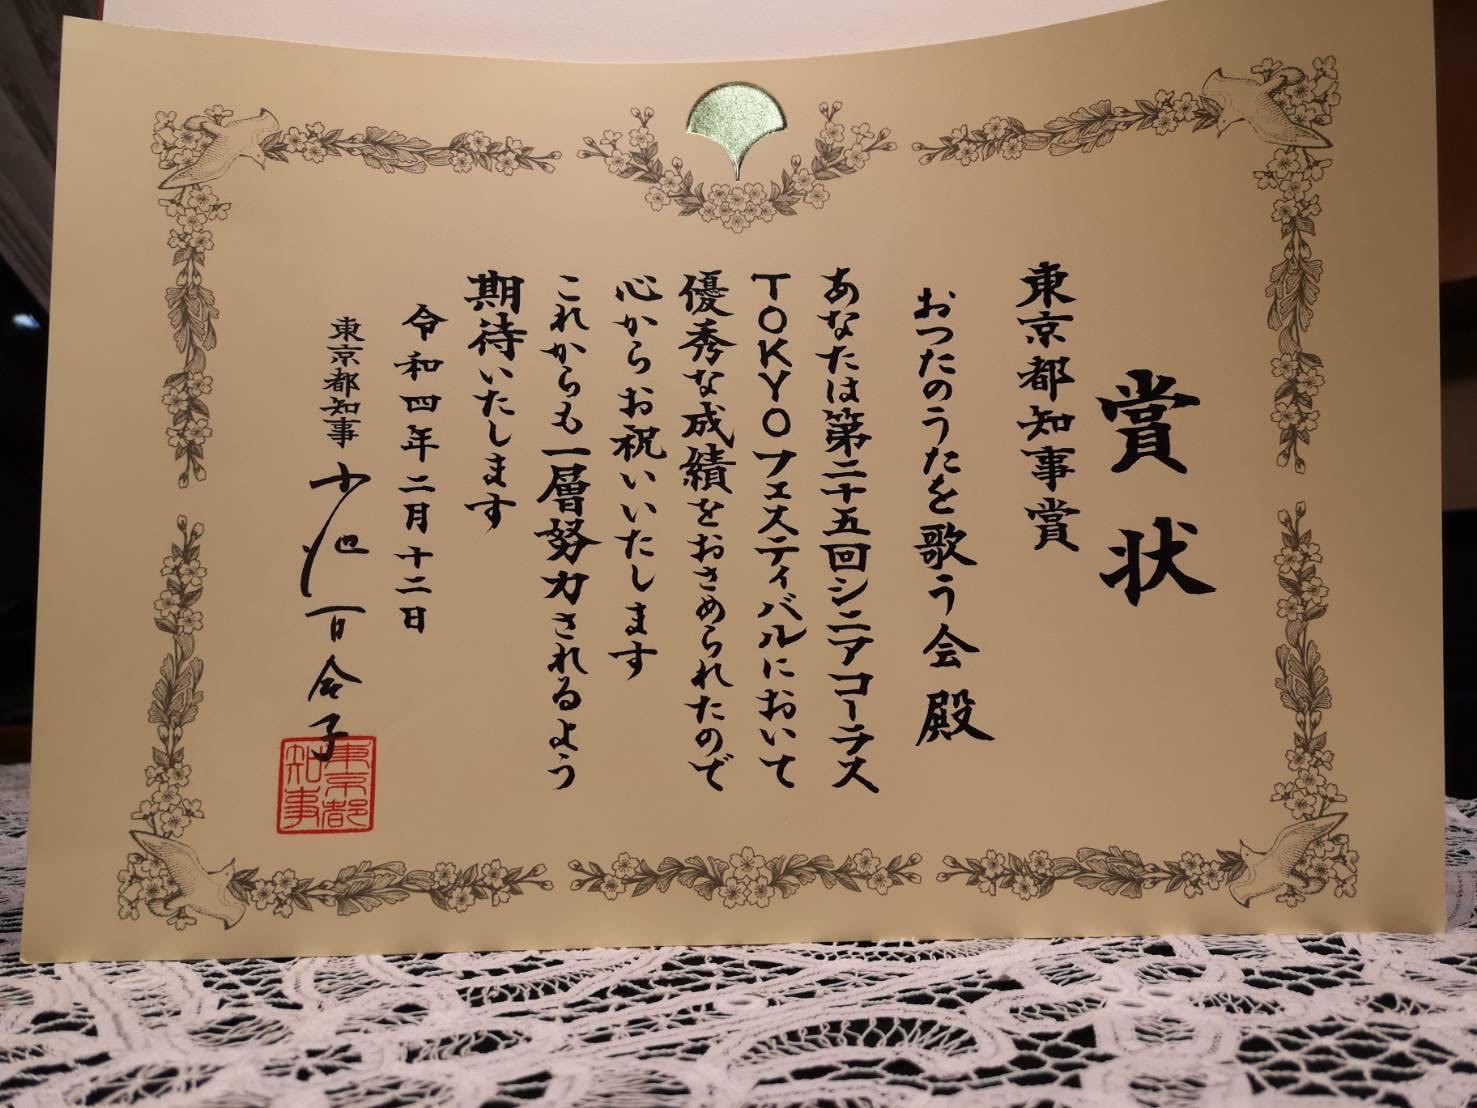 賞状
東京都知事賞
おったのうたを歌う会 殿
あなたは第二十五回シニアコーラス
TOKYOフェスティバルにおいて
優秀な成績をおさめられたので
心からお祝いいたします
これからも一層努力されるよう
期待いたします
令和四年二月十二日
東京都知事 小池百合子
東京都
知事